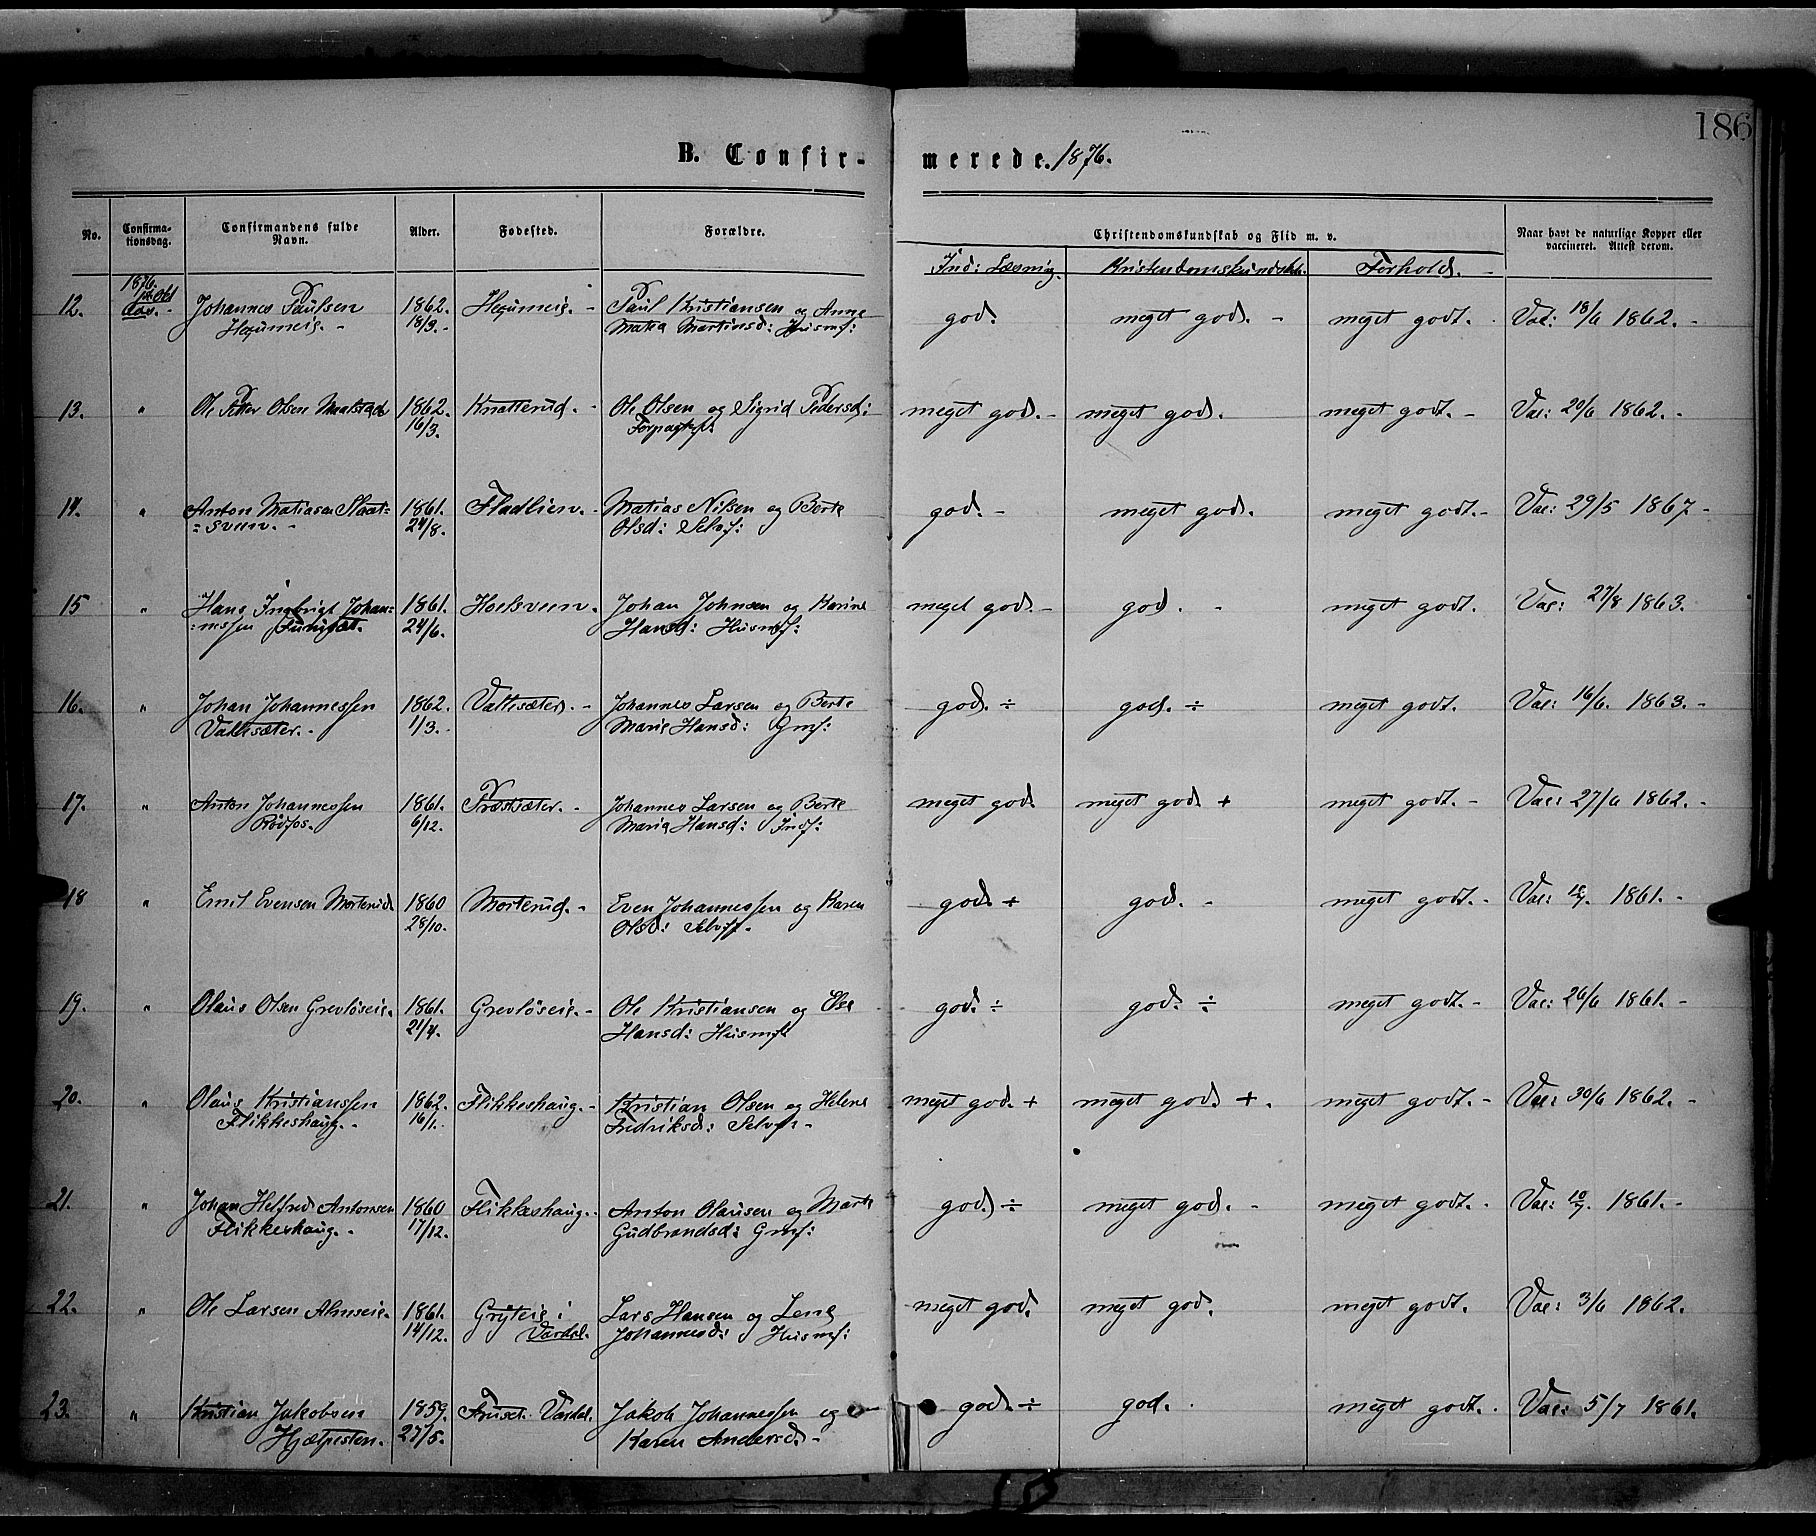 186
B. Confir- merede. 1876.
No. Confirma-tionsdag. Confirmandens fulde Navn. Alder. Fødested. Forældre. Christendomskundskab og Flid m. v. Naar havt de naturlige Kopper eller vaccineret. Attest derom.
Ind: Læsning. Kristendomskundskb. Forhold. -
1876.
12. Johannes Paulsen 1862. Hegumeie. - Paul Kristiansen og Anne god. meget god. - meget godt. Vac: 18/6 1862. -
Hegumeie. - 18/3. - Matea Martinsd: Husmf:
13. " Ole Petter Olsen 1862. Knatterud. - Ole Olsen og Sigrid Pedersd: meget god. - meget god. meget godt. - Vac: 20/6 1862. -
16/3. Forpagtf:
14. " Anton Matiasen Slaat= 1861. Fladlien. - Matias Nilsen og Berte god. - meget god. meget godt. - Vac: 29/5 1867 -
=sveen. - 24/8. Olsd: Selvf:
15 " Hans Ingbrigt Johan= 1861. Hoelsveen. Johan Johnsen og Karine meget god. - god. - meget godt. Vac: 27/8 1863.
=nssen 24/6. Hansd: Husmf:
16. " Johan Johannessen 1862. Vattesæter. - Johannes Larsen og Berte god. ÷ god. ÷ meget godt. Vac: 16/6. 1863. -
Vattesæter. - 1/3. - Marie Hansd: Gmf:
17. " Anton Johannessen 1861. Præstsæter. - Johannes Larsen og Berte meget god meget god + meget godt. - Vac: 27/6 1862. -
Rødfos. 6/12. Maria Hansd: Indf:
18 " Emil Evensen Morterud. 1860 Morterud. - Even Johannessen og Karen god. + god. - meget godt. - Vac: 1861. -
28/10. Olsd: Selvf:
19. " Olaus Olsen Grevløseie. 1861. Grevløseie. - Ole Kristiansen og Else god. ÷ god. ÷ meget godt. - Vac: 26/6 1861. -
21/4. Hansd: Husmf:
20. " Olaus Kristianssen 1862. Flikkeshaug. - Kristian Olsen og Helene meget god. + meget god. +. meget godt. - Vac: 30/6 1862. -
Flikkeshaug. - 16/1. Fredriksd: Selvf: -
21. " Johan Helfred Antonsen 1860 Flikkeshaug. - Anton Olausen og Marte god. ÷ meget god. - meget godt. - Vac: 10/7. 1861. -
Flikkeshaug. - 17/12. Gudbrandsd: Gmf:
22. " Ole Larsen Almseie. 1861. Gryteie i Lars Hansen og Lene meget god. meget god. meget godt. Vac: 3/6 1862.
14/12. Vardal. Johannesd: Husmf:
23. " Kristian Jakobsen 1859. Vardal. Jakob Johannessen og god. ÷ god. meget godt. Vac: 5/7 1861.
27/5. Karen Andersd. -